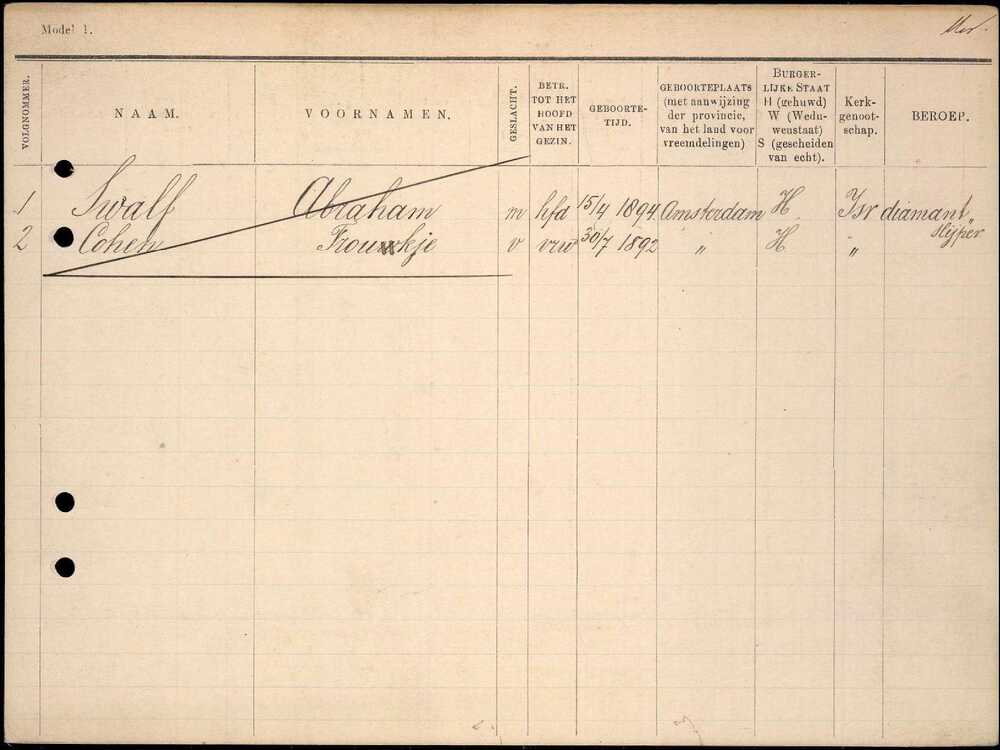 Model 1.
VOLGNOMMER.
NAAM.
VOORNAMEN.
GESLACHT.
BETR.
TOT HET
HOOFD
VAN HET
GEZIN.
GEBOORTE-
TIJD.
GEBOORTEPLAATS
(met aanwijzing
der provincie,
van het land voor
vreemdelingen)
BURGER-
LIJKE STAAT
H (gehuwd)
W (Wedu-
weustaat)
S (gescheiden
van echt).
Kerk-
genoot-
schap.
BEROEP.
1 Swalf Abraham m hfd 15/4 1894 Amsterdam H Isr diamant„
slijper
2 Cohen Trouwkje v vrw 30/7 1892 „ H „